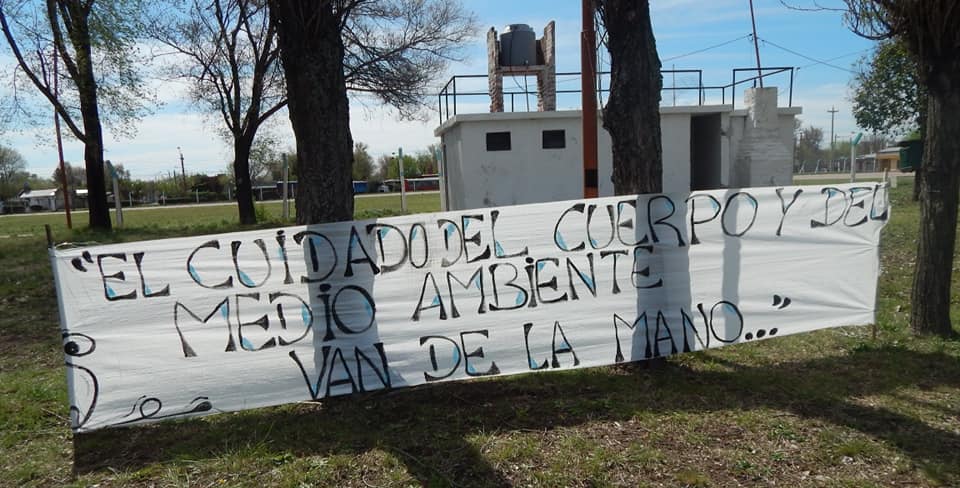 "EL CUIDADO DEL CUERPO Y DEL
MEDIO AMBIENTE
VAN DE LA MANO..."